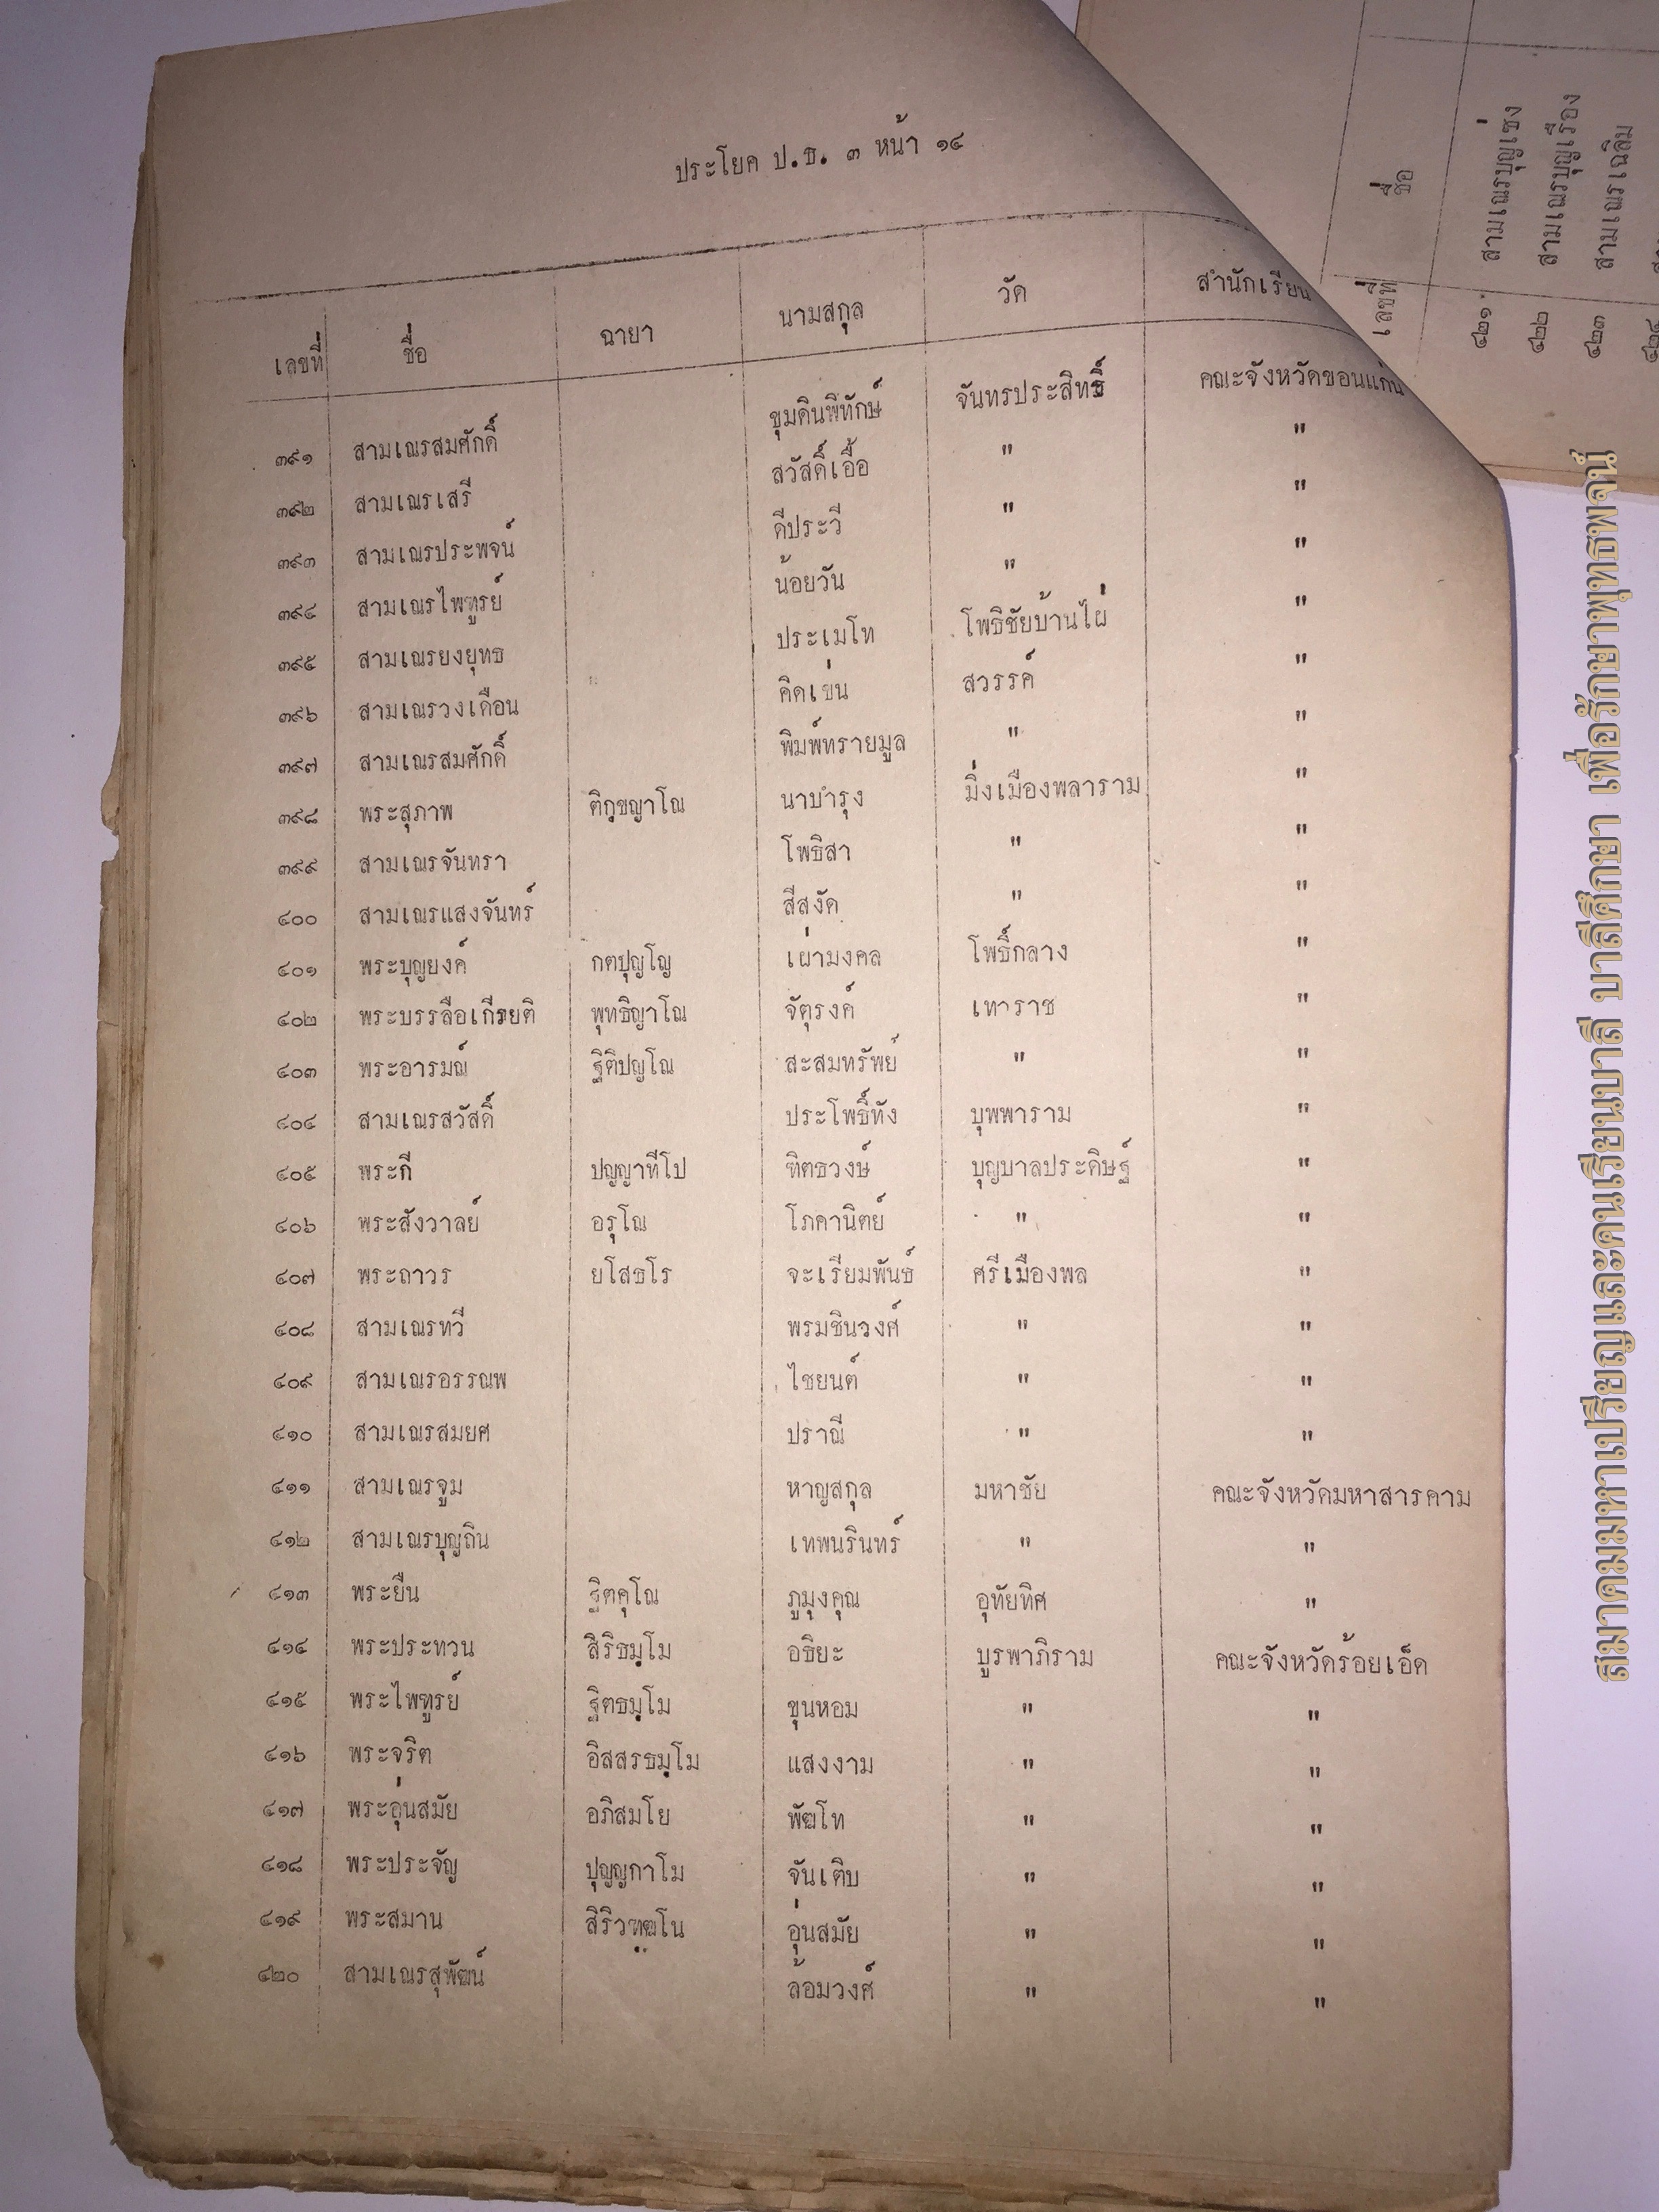 ประโยค ป.ธ. ๓ หน้า ๑๔
เลขที่ ชื่อ ฉายา นามสกุล วัด สำนักเรียน
๓๙๑ สามเณรสมศักดิ์ ขุมดินพิทักษ์ จันทรประสิทธิ์ คณะจังหวัดขอนแก่น
๓๙๒ สามเณรเสรี สวัสดิ์เอื้อ " "
๓๙๓ สามเณรประพจน์ ดีประวี " "
๓๙๔ สามเณรไพฑูรย์ น้อยวัน " "
๓๙๕ สามเณรยงยุทธ ประเมโท โพธิชัยบ้านไผ่ "
๓๙๖ สามเณรวงเดือน คิดเข่น สวรรค์ "
๓๙๗ สามเณรสมศักดิ์ พิมพ์ทรายมูล " "
๓๙๘ พระสุภาพ ติกฺขญาโณ นาบำรุง มิ่งเมืองพลาราม "
๓๙๙ สามเณรจันทรา โพธิสา " "
๔๐๐ สามเณรแสงจันทร์ สีสงัด " "
๔๐๑ พระบุญยงค์ กตปุญโญ เผ่ามงคล โพธิ์กลาง "
๔๐๒ พระบรรลือเกียรติ พุทธิญาโณ จัตุรงค์ เทวราช "
๔๐๓ พระอารมณ์ ฐิติปญโณ สะสมทรัพย์ " "
๔๐๔ สามเณรสวัสดิ์ ประโพธิ์ทัง บุพพาราม "
๔๐๕ พระกี ปญญาทีโป ทิตธวงษ์ บุญบาลประดิษฐ์ "
๔๐๖ พระสังวาลย์ อรุโณ โภคานิตย์ " "
๔๐๗ พระถาวร ยโสธโร จะเรียมพันธ์ ศรีเมืองพล "
๔๐๘ สามเณรทวี พรมชินวงศ์ " "
๔๐๙ สามเณรอรรณพ ไชยนต์ " "
๔๑๐ สามเณรสมยศ ปราณี " "
๔๑๑ สามเณรจูม หาญสกุล มหาชัย คณะจังหวัดมหาสารคาม
๔๑๒ สามเณรบุญถิน เทพนรินทร์ " "
๔๑๓ พระยืน ฐิตคุโณ ภูมุงคุณ อุทัยทิศ "
๔๑๔ พระประทวน สิริธมฺโม อธิยะ บูรพาภิราม คณะจังหวัดร้อยเอ็ด
๔๑๕ พระไพฑูรย์ ฐิตธมฺโม ขุนหอม " "
๔๑๖ พระจริต อิสสรธมฺโม แสงงาม " "
๔๑๗ พระอุ่นสมัย อภิสมโย พัฒโท " "
๔๑๘ พระประจัญ ปุญญกาโม จันเติบ " "
๔๑๙ พระสมาน สิริวฑฺฒโน อุ่นสมัย " "
๔๒๐ สามเณรสุพัฒน์ ล้อมวงศ์ " "
เลขที่ ชื่อ
๔๒๑ สามเณรบุญเซง
๔๒๒ สามเณรบุญเรือง
๔๒๓ สามเณรเฉลิม
๔๒๔
สมาคมมหาเปรียญและคนเรียนบาลี บาลีศึกษา เพื่อรักษาพุทธพจน์